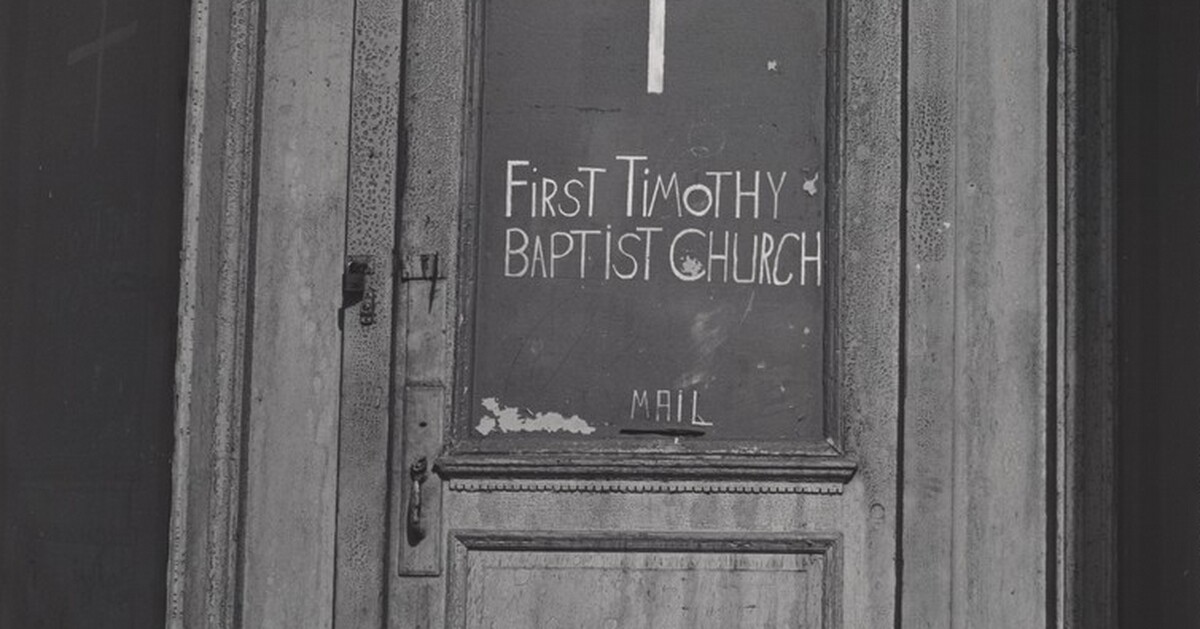 FiRST TiMOTHY
BAPTiST CHURCH
MAiL